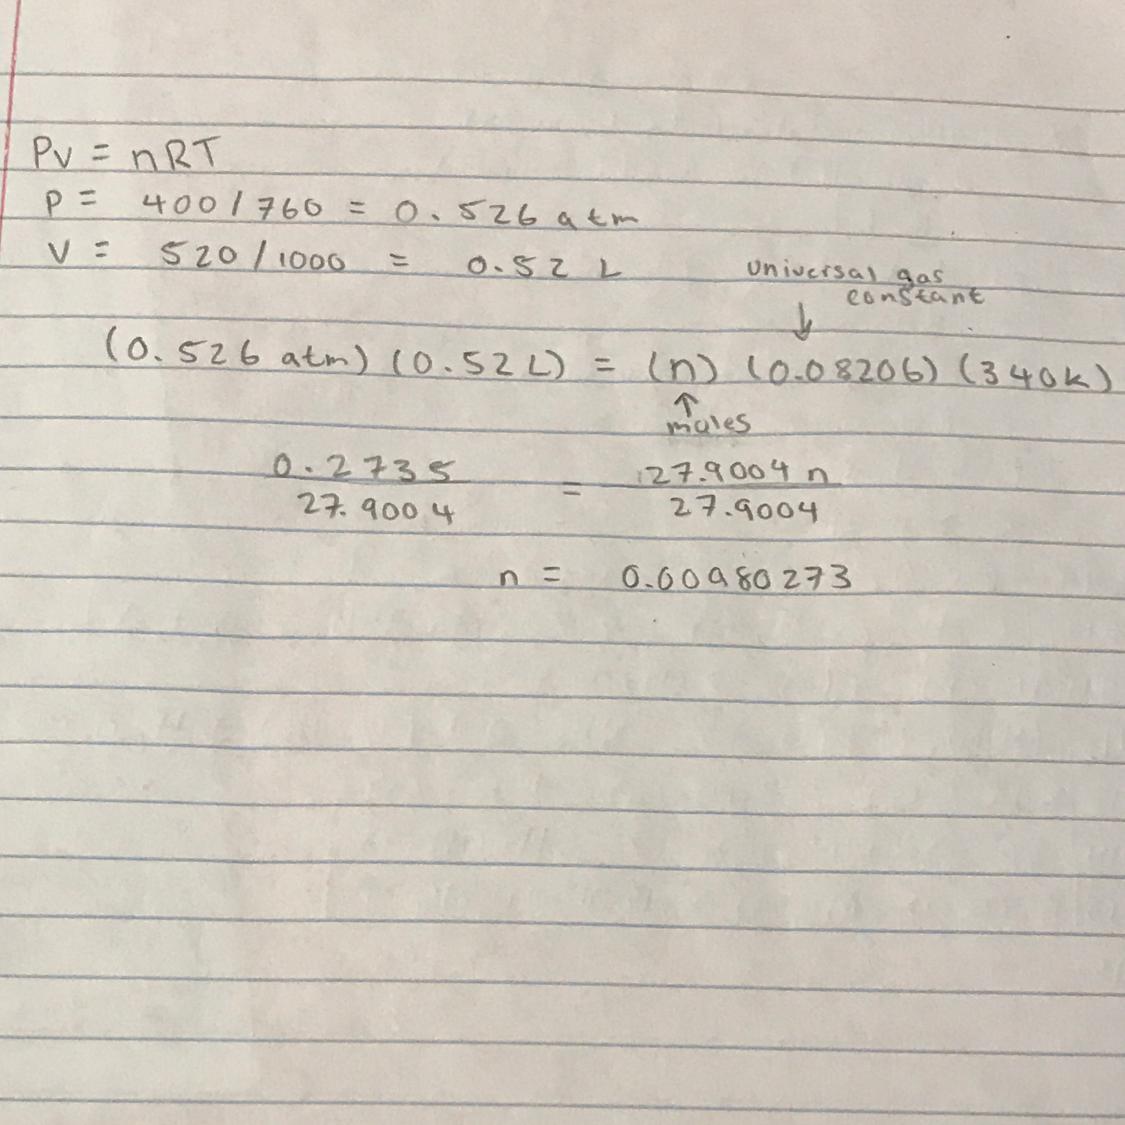 PV = nRT
P = 400/760 = 0.526 atm
V = 520/1000 = 0.52 L
universal gas
constant
↓
(0.526 atm) (0.52L) = (n) (0.08206) (340K)
↑
moles
0.2735 = 27.9004 n
27.9004 27.9004
n = 0.00980273